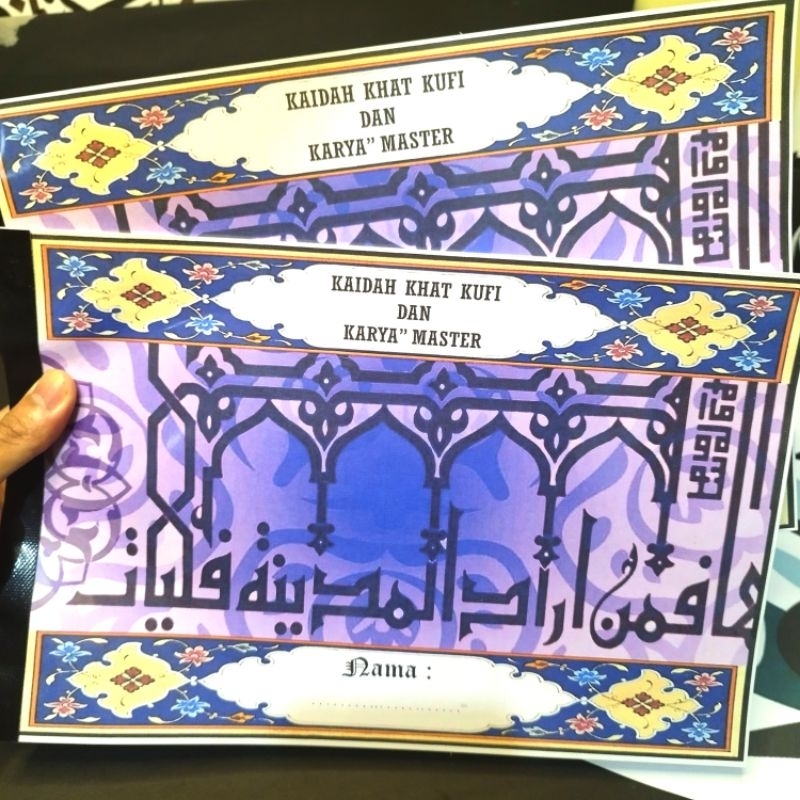 KAIDAH KHAT KUFI
DAN
KARYA” MASTER
KAIDAH KHAT KUFI
DAN
KARYA” MASTER
ها فمن اراد المدينة فليات
Nama :